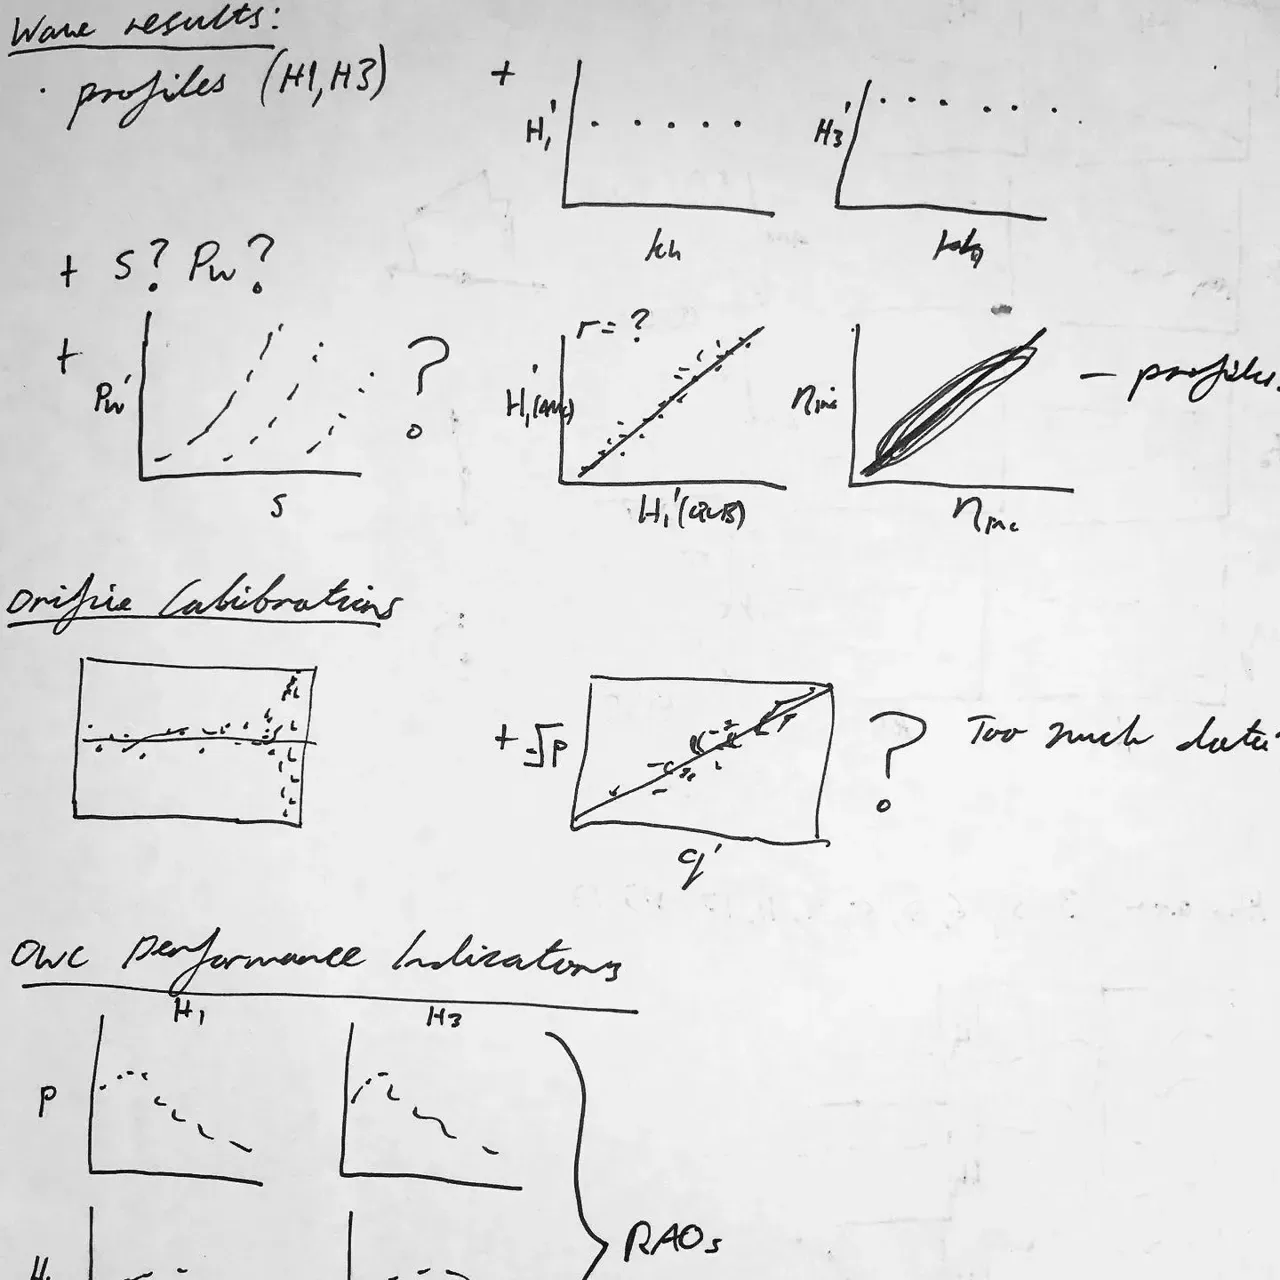 Wave results:
· profiles (H1,H3)
+
H₁'
kh
H₃'
kh
+ S? Pw?
+
Pw'
S
?
r = ?
H₁'(AMC)
H₁'(QUB)
ηinc
ηinc
– profiles.
Orifice Calibrations
+ √p
q'
? Too much data
OWC Performance Indicators
H₁
H₃
P
RAOs